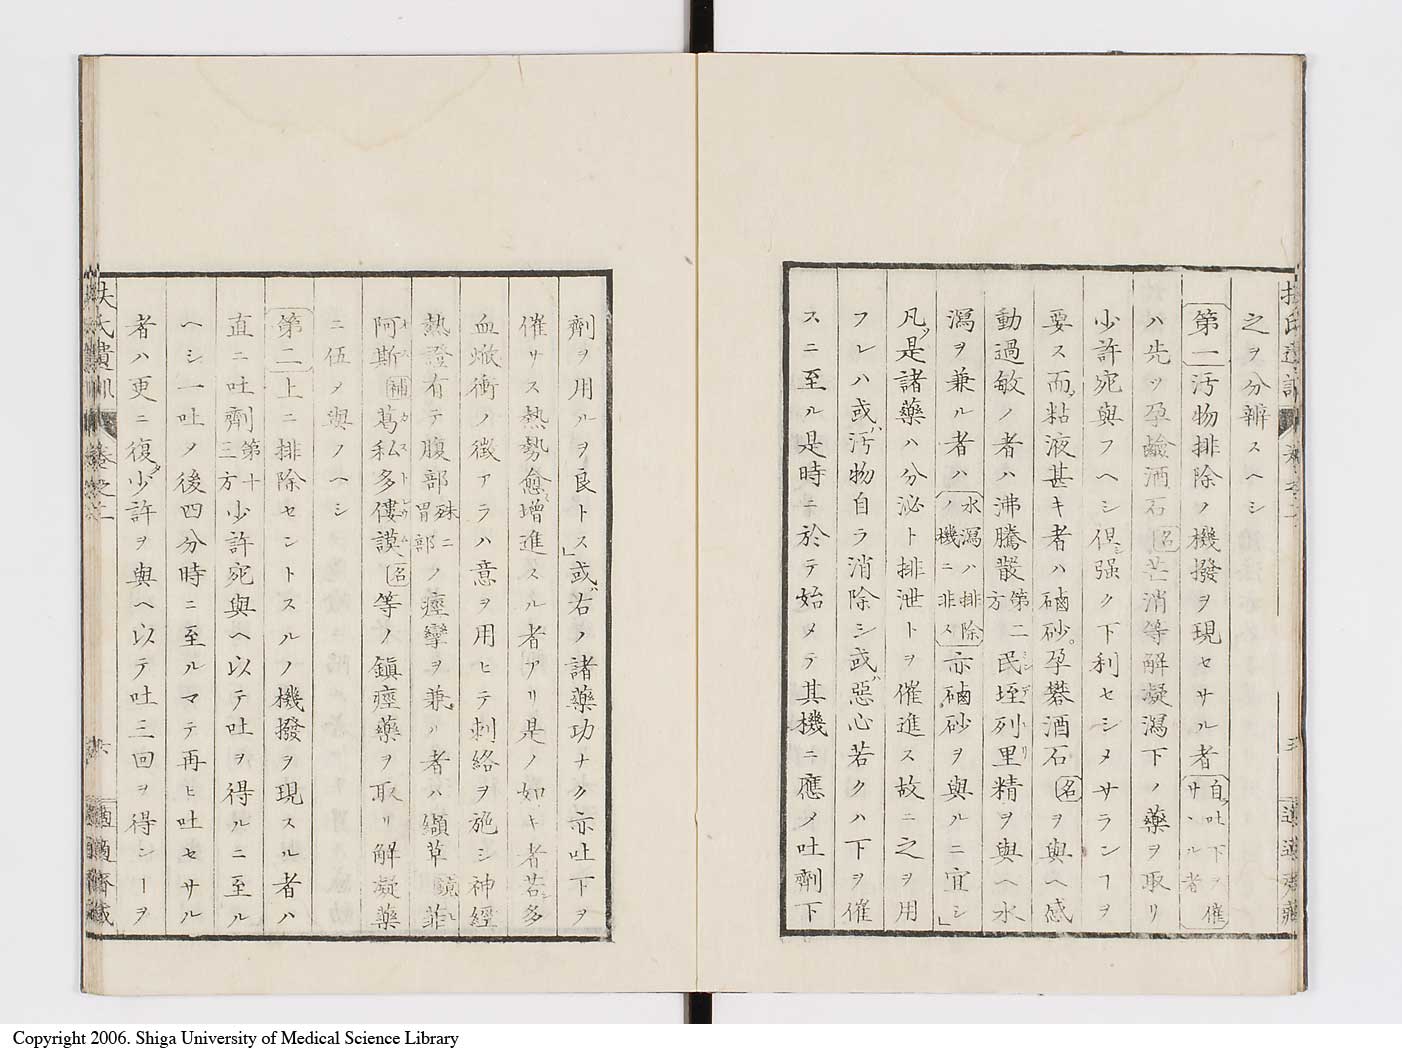 之ヲ分辨スヘシ
第一汚物排除ノ機撥ヲ現セサル者自吐下ヲ催サヽル者
ハ先ツ孕鹼酒石名芒消等解凝瀉下ノ藥ヲ取リ
少許宛與フヘシ但シ强ク下利セシメサランヿヲ
要ス而粘液甚キ者ハ磠砂。孕礬酒石名ヲ與ヘ感
動過敏ノ者ハ沸騰散第二方民垤列里精ヲ與ヘ水
瀉ヲ兼ル者ハ水瀉ハ排除ノ機ニ非ス亦磠砂ヲ與ルニ宜シ」
凡ソ是諸藥ハ分泌ト排泄トヲ催進ス故ニ之ヲ用
フレハ或ハ汚物自ラ消除シ或ハ惡心若クハ下ヲ催
スニ至ル是時ニ於テ始メテ其機ニ應ノ吐劑下
劑ヲ用ルヲ良トス」或ハ右ノ諸藥功ナク亦吐下ヲ
催サス熱勢愈增進スル者アリ是ノ如キ者若シ多
血焮衝ノ徴アラハ意ヲ用ヒテ刺絡ヲ施シ神經
熱證有テ腹部殊ニ胃部ノ痙攣ヲ兼ル者ハ纈草鏡菲
阿斯補葛私多僂謨名等ノ鎭痙藥ヲ取リ解凝藥
ニ伍メ與フヘシ
第二上ニ排除セントスルノ機撥ヲ現スル者ハ
直ニ吐劑第十三方少許宛與ヘ以テ吐ヲ得ルニ至ル
ヘシ一吐ノ後四分時ニ至ルマテ再ヒ吐セサル
者ハ更ニ復少許ヲ與ヘ以テ吐三回ヲ得ンヿヲ
扶氏遺訓
卷之二
六
適適齋藏
Copyright 2006. Shiga University of Medical Science Library